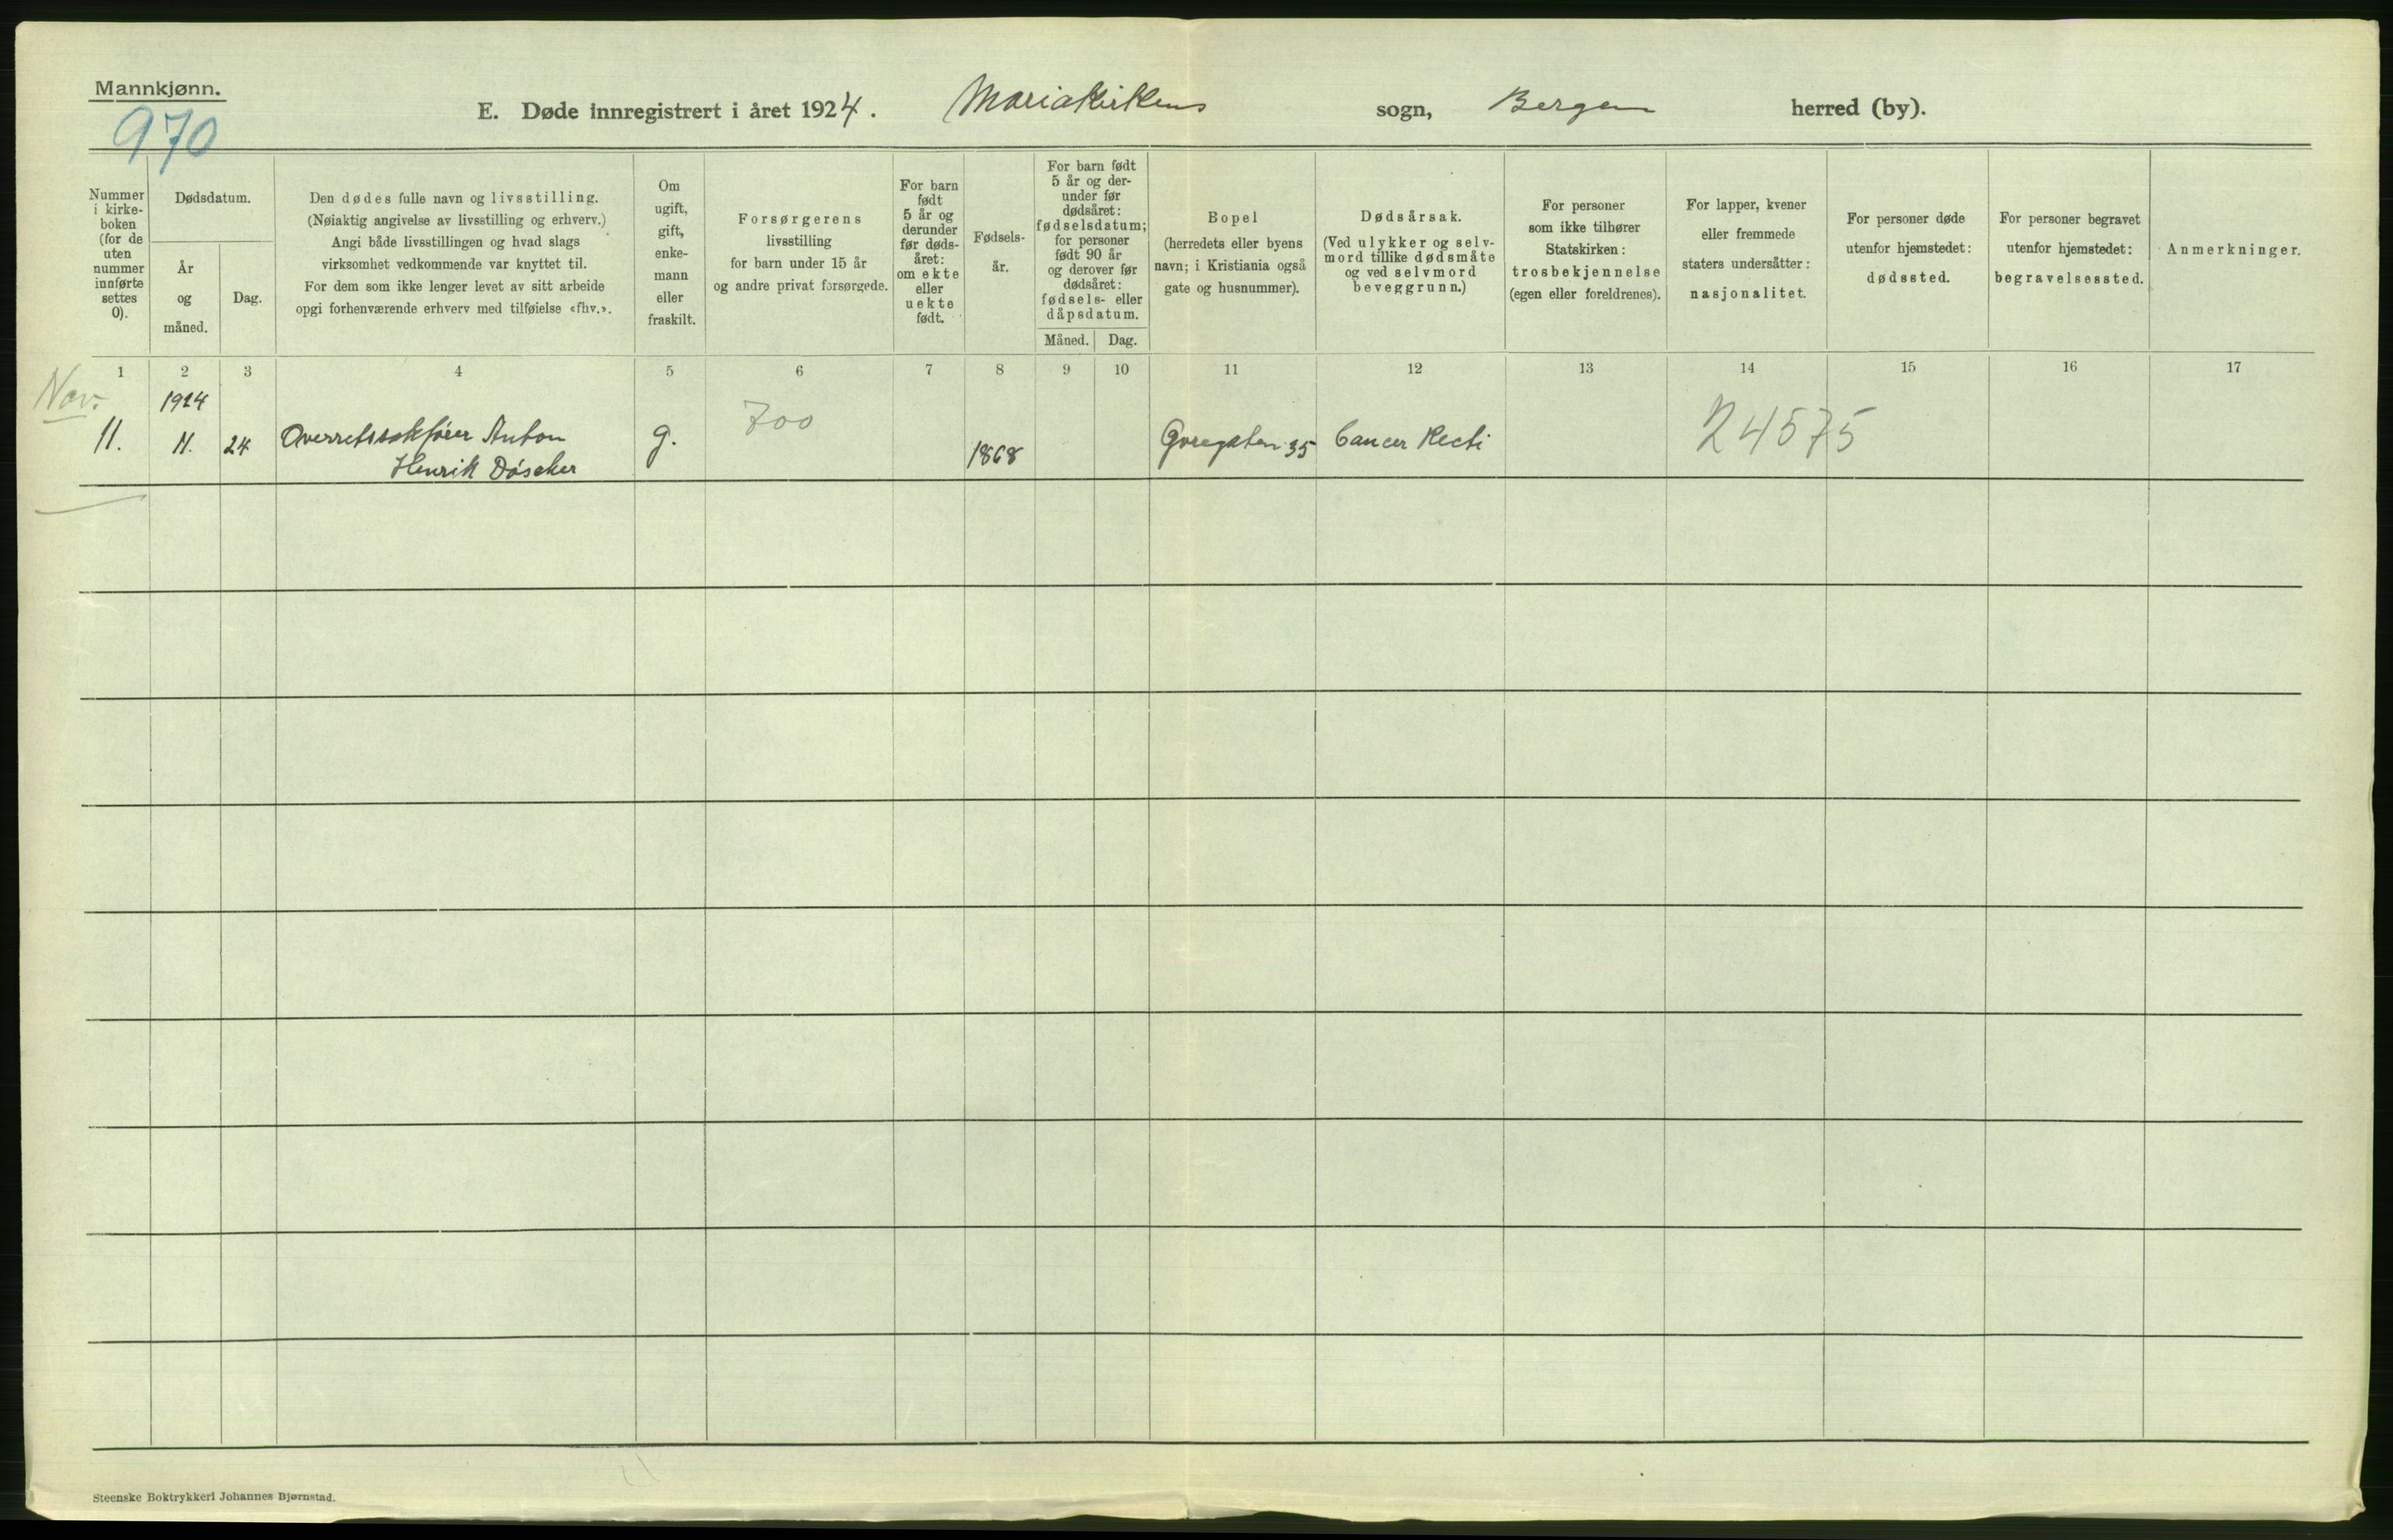 Mannkjønn.
970
E. Døde innregistrert i året 1924. Mariakirkens sogn, Bergen herred (by).
Nummer
i kirke-
boken
(for de
uten
nummer
innførte
settes
0).
Dødsdatum.
År
og
måned.
Dag.
Den dødes fulle navn og livsstilling.
(Nøiaktig angivelse av livsstilling og erhverv.)
Angi både livsstillingen og hvad slags
virksomhet vedkommende var knyttet til.
For dem som ikke lenger levet av sitt arbeide
opgi forhenværende erhverv med tilføielse «fhv.».
Om
ugift,
gift,
enke-
mann
eller
fraskilt.
Forsørgerens
livsstilling
for barn under 15 år
og andre privat forsørgede.
For barn
født
5 år og
derunder
før døds-
året:
om ekte
eller
uekte
født.
Fødsels-
år.
For barn født
5 år og der-
under før
dødsåret:
fødselsdatum;
for personer
født 90 år
og derover før
dødsåret:
fødsels- eller
dåpsdatum.
Måned. Dag.
Bopel
(herredets eller byens
navn; i Kristiania også
gate og husnummer).
Dødsårsak.
(Ved ulykker og selv-
mord tillike dødsmåte
og ved selvmord
beveggrunn.)
For personer
som ikke tilhører
Statskirken:
trosbekjennelse
(egen eller foreldrenes).
For lapper, kvener
eller fremmede
staters undersåtter:
nasjonalitet.
For personer døde
utenfor hjemstedet:
dødssted.
For personer begravet
utenfor hjemstedet:
begravelsessted.
Anmerkninger.
1 2 3 4 5 6 7 8 9 10 11 12 13 14 15 16 17
Nov.
1924
11. 11. 24 Overretssakfører Anton g. 700 1868 35 Cancer Recti 24575
Henrik Döscher
Steenske Boktrykkeri Johannes Bjørnstad.